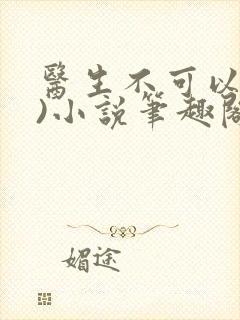 醫生不可以
)小說筆趣閣
媚途